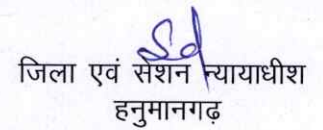 Sd
जिला एवं सेशन न्यायाधीश
हनुमानगढ़